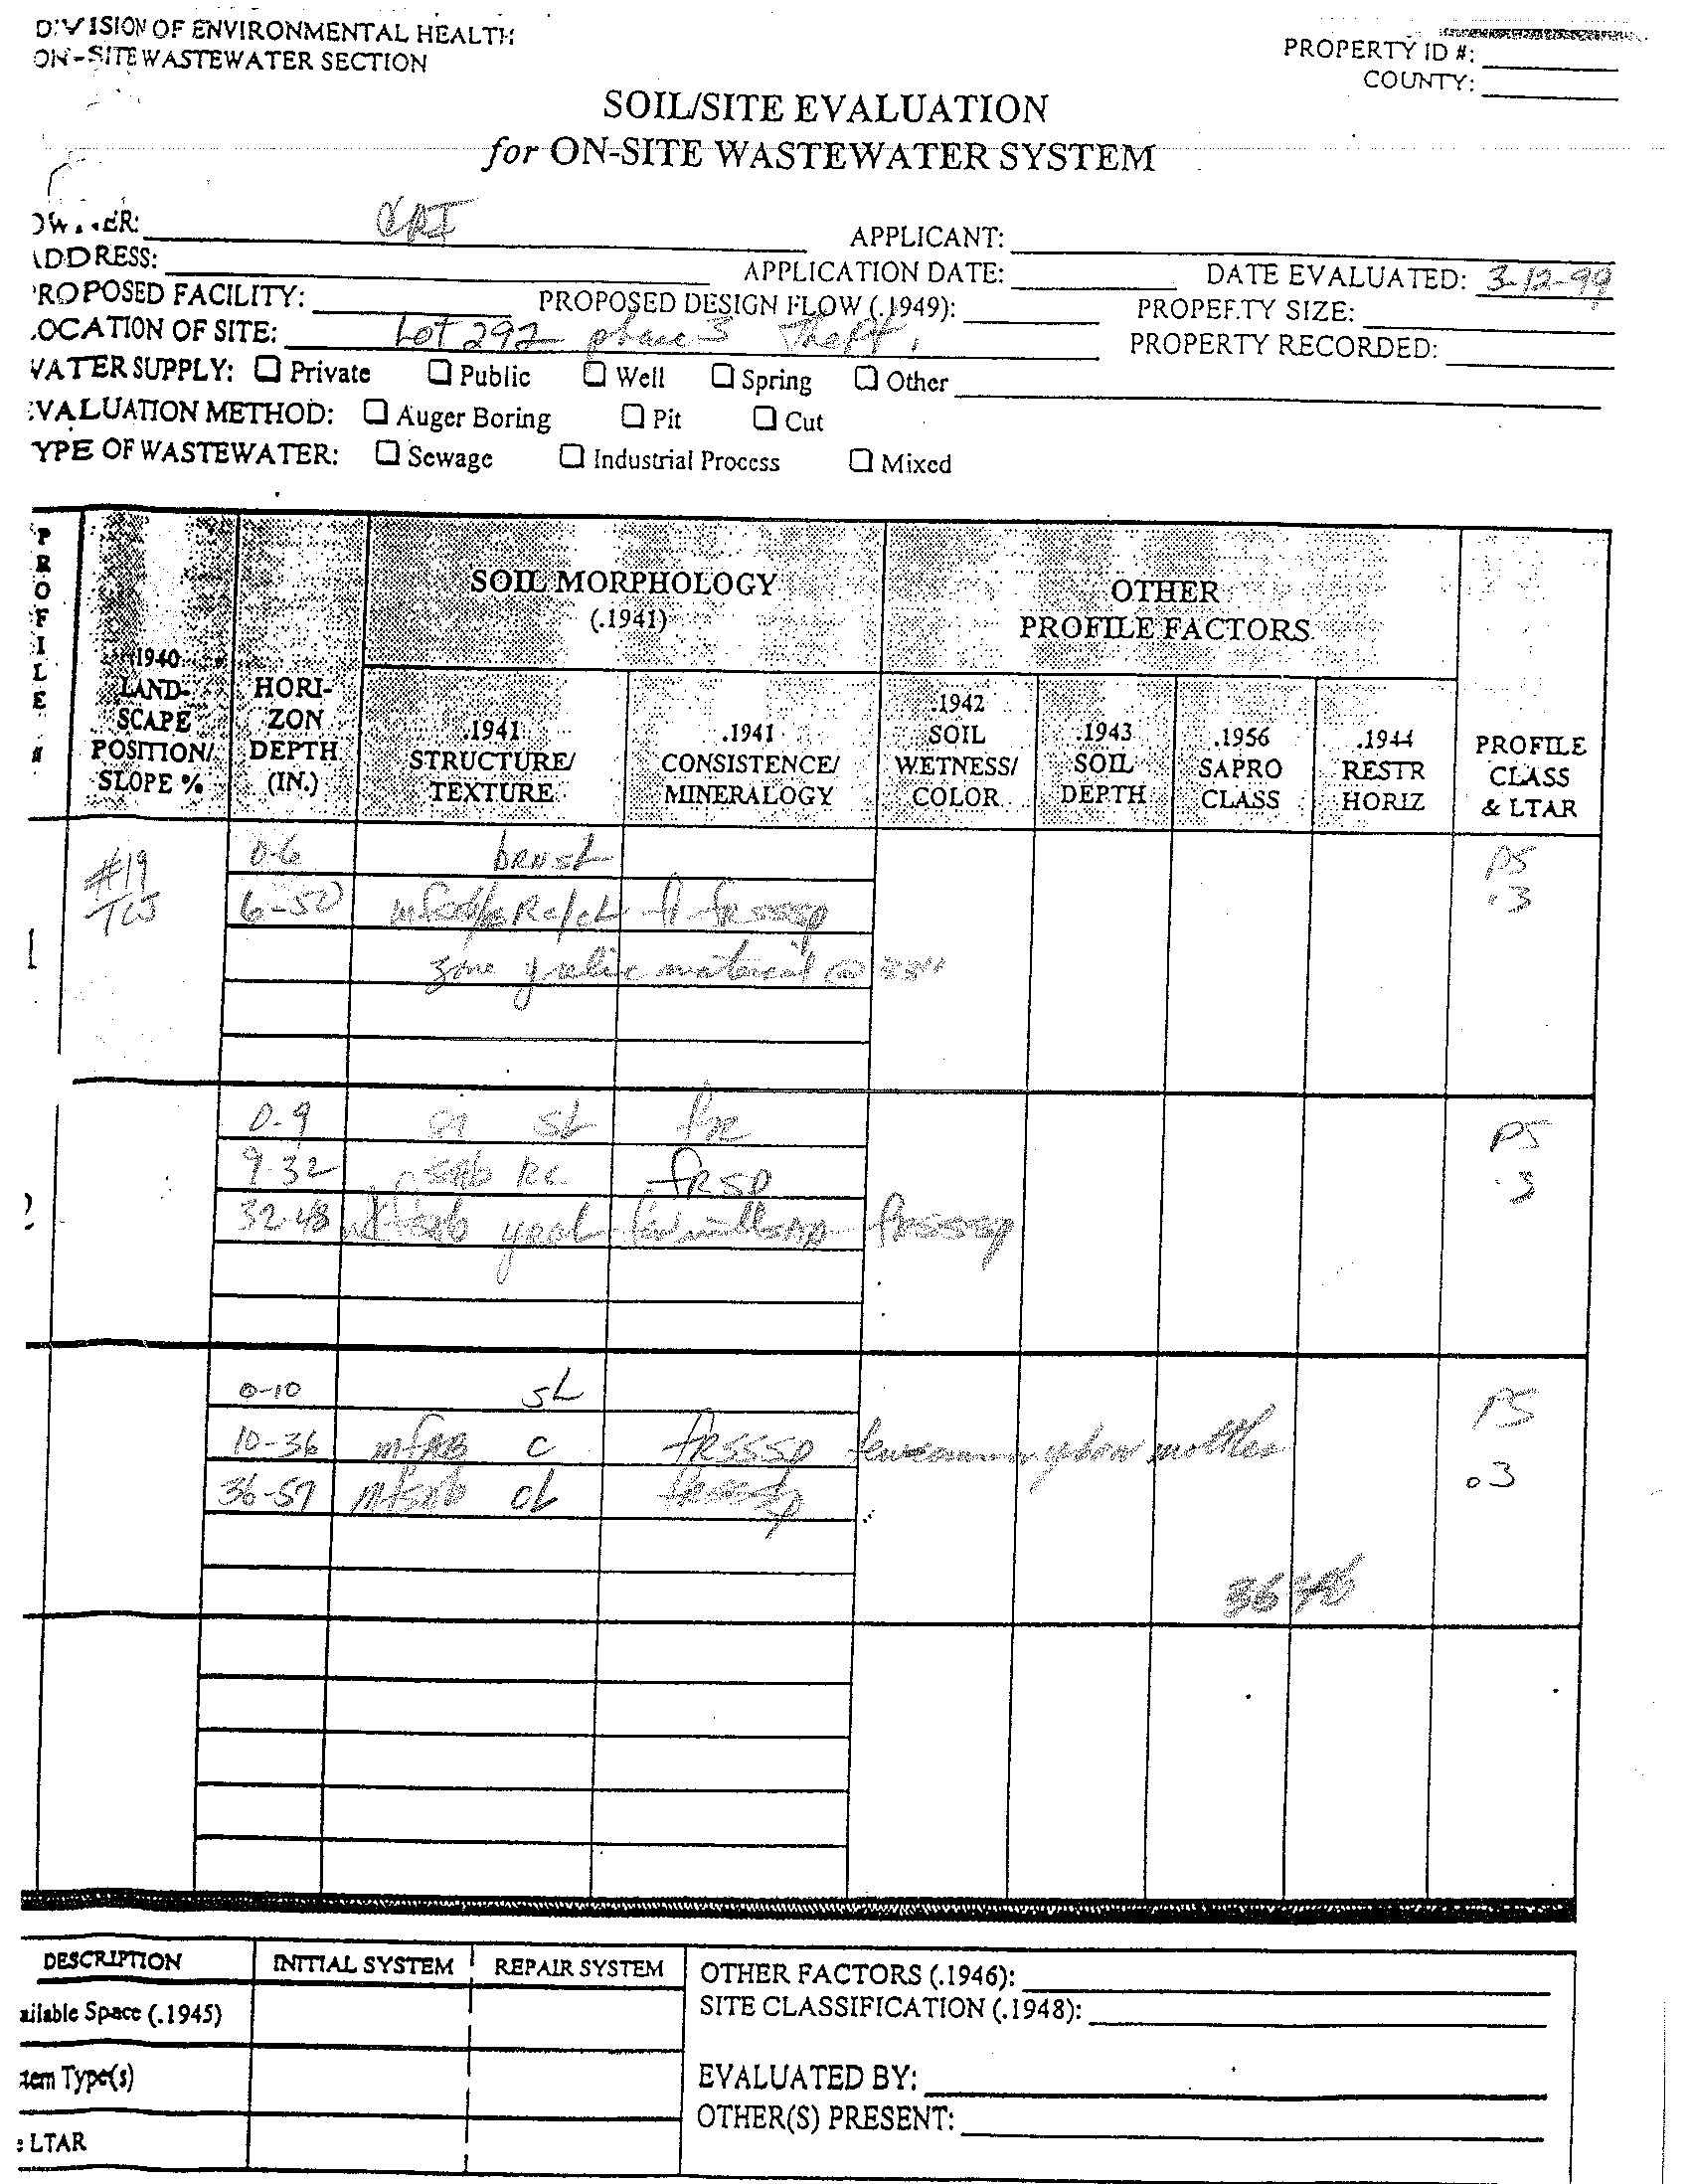 DIVISION OF ENVIRONMENTAL HEALTH
ON-SITE WASTEWATER SECTION
PROPERTY ID #:
COUNTY:
SOIL/SITE EVALUATION
for ON-SITE WASTEWATER SYSTEM
APPLICANT:
ADDRESS:
APPLICATION DATE:
DATE EVALUATED: 3-12-99
PROPOSED FACILITY:
PROPOSED DESIGN FLOW (.1949):
PROPERTY SIZE:
LOCATION OF SITE: Lot 292 phase 3
PROPERTY RECORDED:
WATER SUPPLY: Private Public Well Spring Other
EVALUATION METHOD: Auger Boring Pit Cut
TYPE OF WASTEWATER: Sewage Industrial Process Mixed
PROFILE #
.1940 LAND-SCAPE POSITION/ SLOPE %
HORI-ZON DEPTH (IN.)
SOIL MORPHOLOGY (.1941)
.1941 STRUCTURE/ TEXTURE
.1941 CONSISTENCE/ MINERALOGY
OTHER PROFILE FACTORS
.1942 SOIL WETNESS/ COLOR
.1943 SOIL DEPTH
.1956 SAPRO CLASS
.1944 RESTR HORIZ
PROFILE CLASS & LTAR
1
#19
0-6 brn SL PS
6-50 .3
zone material @
2
0-9 SL fR PS
9-32 sab RC fRSP .3
32-48
0-10 SL PS
10-36 mfAB C fRSSSP mottles
36-57 CL .03
36
DESCRIPTION INITIAL SYSTEM REPAIR SYSTEM
ailable Space (.1945)
tem Type(s)
LTAR
OTHER FACTORS (.1946):
SITE CLASSIFICATION (.1948):
EVALUATED BY:
OTHER(S) PRESENT: